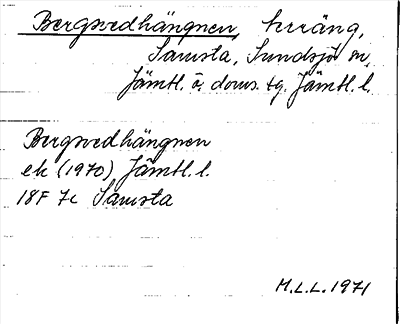 Bergsvedhängnen, hrräng,
Samsta, Sundsjö sn,
Jämtl. ö. doms. tg. Jämtl. l.
Bergsvedhängnen
ek (1970) Jämtl. l.
18F 7c Samsta
M.L.L. 1971